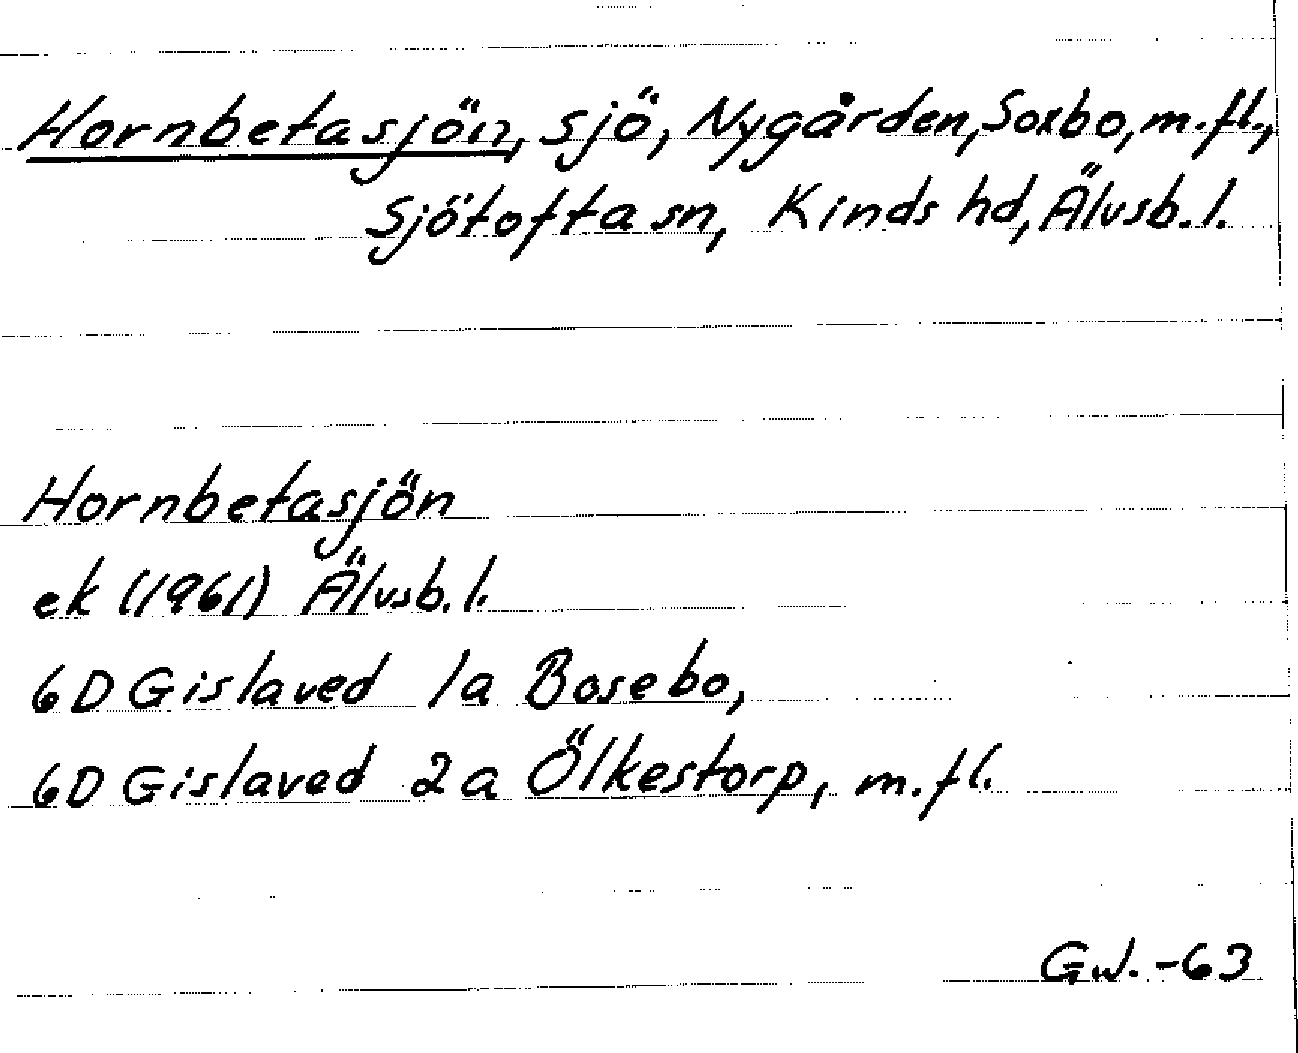 Hornbetasjön, sjö, Nygården, Soxbo, m.fl.,
Sjötofta sn, Kinds hd, Älvsb. l.
Hornbetasjön
ek (1961) Älvsb. l.
6D Gislaved 1a Bosebo,
6D Gislaved 2a Ölkestorp, m.fl.
Gw. -63